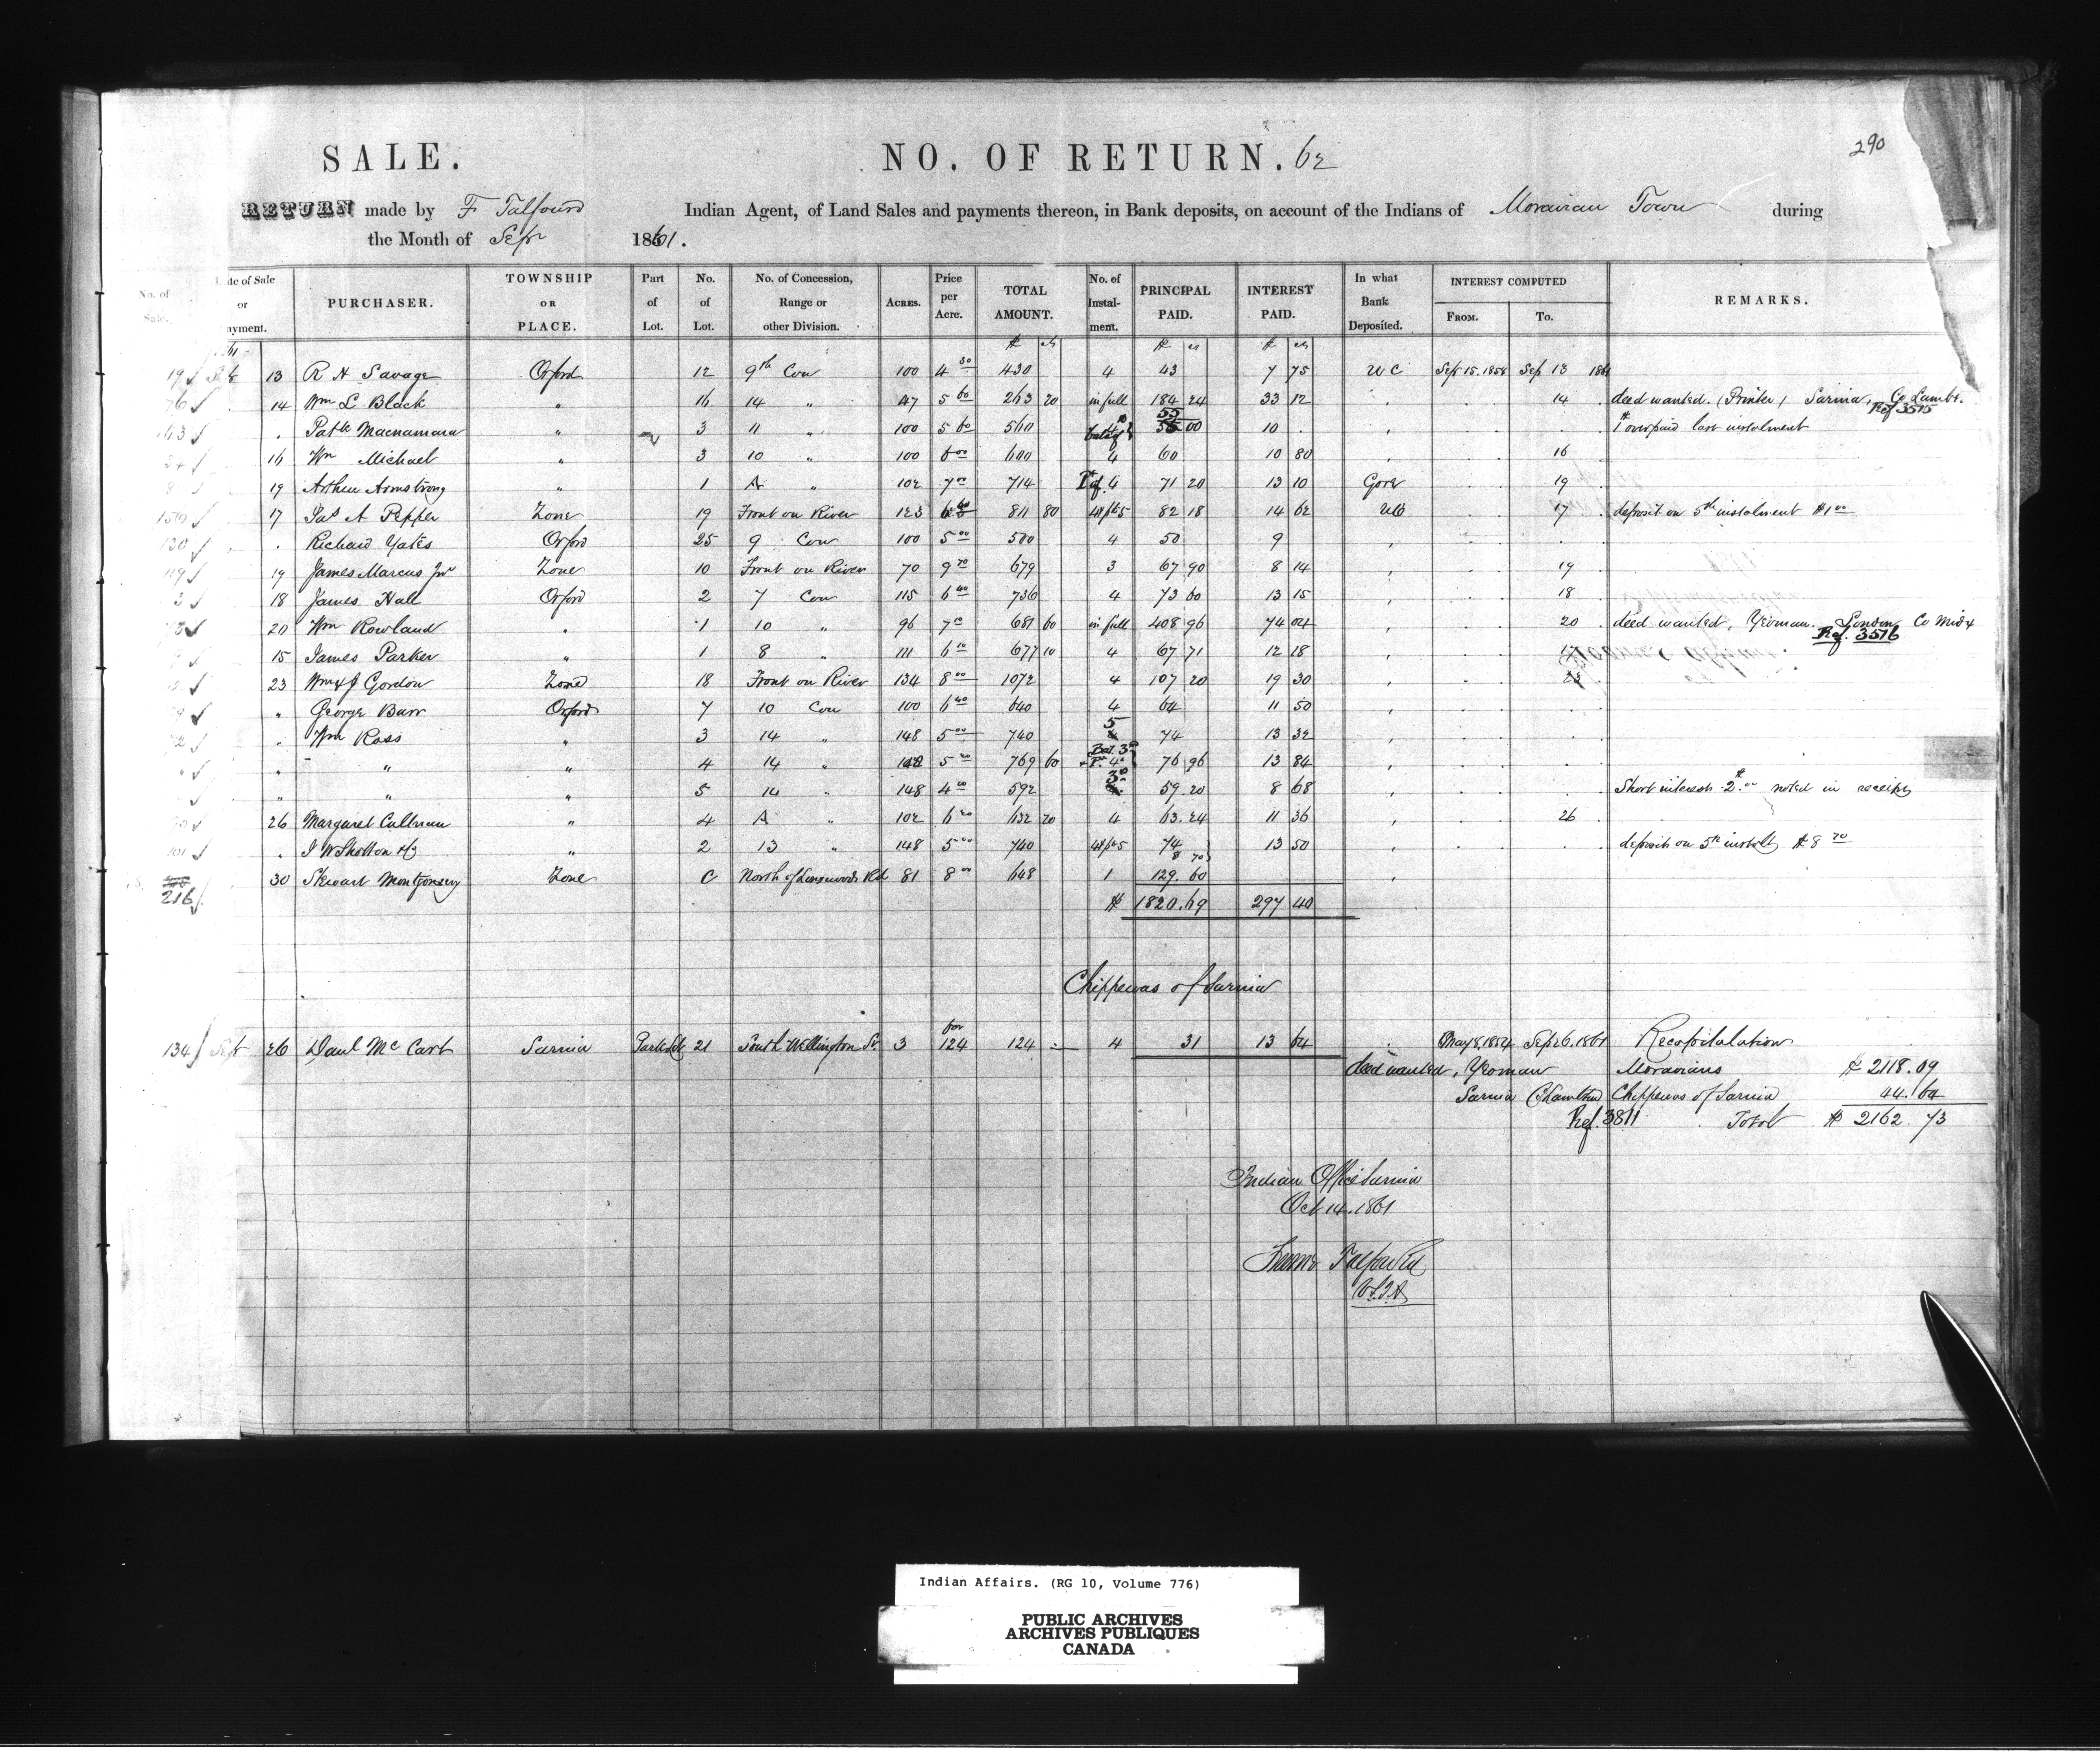 290
SALE. NO. OF RETURN. 62
RETURN made by F Talfourd Indian Agent, of Land Sales and payments thereon, in Bank deposits, on account of the Indians of Moravian Town during
the Month of Sept 1861.
No. of Sale. Date of Sale or Payment. PURCHASER. TOWNSHIP OR PLACE. Part of Lot. No. of Lot. No. of Concession, Range or other Division. ACRES. Price per Acre. TOTAL AMOUNT. No. of Instal-ment. PRINCIPAL PAID. INTEREST PAID. In what Bank Deposited. INTEREST COMPUTED FROM. TO. REMARKS.
$ cts $ cts $ cts
19 Sept 13 R H Savage Orford 12 9th Con 100 4 30 430 4 43 7 75 U C Sept 15. 1858 Sep 13 1861
76 14 Wm L Black " 16 14 " 47 5 60 263 20 in full 184 24 33 12 14 deed wanted. (Printer, Sarnia, Co Lambn. Ref 3515
163 . Patk Macnamara " 3 11 " 100 5 60 560 55 00 10 . $1 overpaid last instalment
34 16 Wm Michael " 3 10 " 100 6 00 600 4 60 10 80 16
19 Arthur Armstrong " 1 A " 102 7 00 714 Pt of 4 71 20 13 10 Gore 19
17 Jas A Pepper Zone 19 Front on River 123 6 60 811 80 4 & pt 5 82 18 14 62 UC 17 deposit on 5th instalment $1 00
130 . Richard Yates Orford 25 9 Con 100 5 00 500 4 50 9
119 19 James Marcus Junr Zone 10 Front on River 70 9 70 679 3 67 90 8 14 19
3 18 James Hall Orford 2 7 Con 115 6 40 736 4 73 60 13 15 18
20 Wm Rowland " 1 10 " 96 7 10 681 60 in full 408 96 74 04 20 deed wanted, Yeoman. London Co Midx Ref. 3516
15 James Parker " 1 8 " 111 6 10 677 10 4 67 71 12 18
23 Wm & J Gordon Zone 18 Front on River 134 8 00 1072 4 107 20 19 30 23
" George Barr Orford 7 10 Con 100 6 40 640 4 64 11 50
. Wm Ross " 3 14 " 148 5 00 740 5 74 13 32
" " " 4 14 " 148 5 20 769 60 Bal. 3d + Pt 4th 76 96 13 84
" " " 5 14 " 148 4 00 592 3d 59. 20 8 68 Short interest 2. noted in receipt
26 Margaret Cullman " 4 A " 102 6 20 632 20 4 63. 24 11 36 26
101 " J W Shotton " 2 13 " 148 5 00 740 4 & pt 5 74 8 70 13 50 deposit on 5th instalt $8 70
216 30 Stewart Montgomery Zone C North of Longwoods Rd 81 8 00 648 1 129. 60
$ 1820. 69 297 40
Chippewas of Sarnia
134 Sept 26 Danl Mc Cart Sarnia Park lot 21 South Wellington St. 3 for 124 124 4 31 13 64 May 8, 1854 Sep 26. 1861 Recapitulation
deed wanted, Yeoman Moravians $ 2118. 09
Sarnia Co Lambton Chippewas of Sarnia 44. 64
Ref. 3811 Total $ 2162. 73
Indian Office Sarnia
Oct 14. 1861
Froome Talfourd
V.S.I.A
Indian Affairs. (RG 10, Volume 776)
PUBLIC ARCHIVES
ARCHIVES PUBLIQUES
CANADA